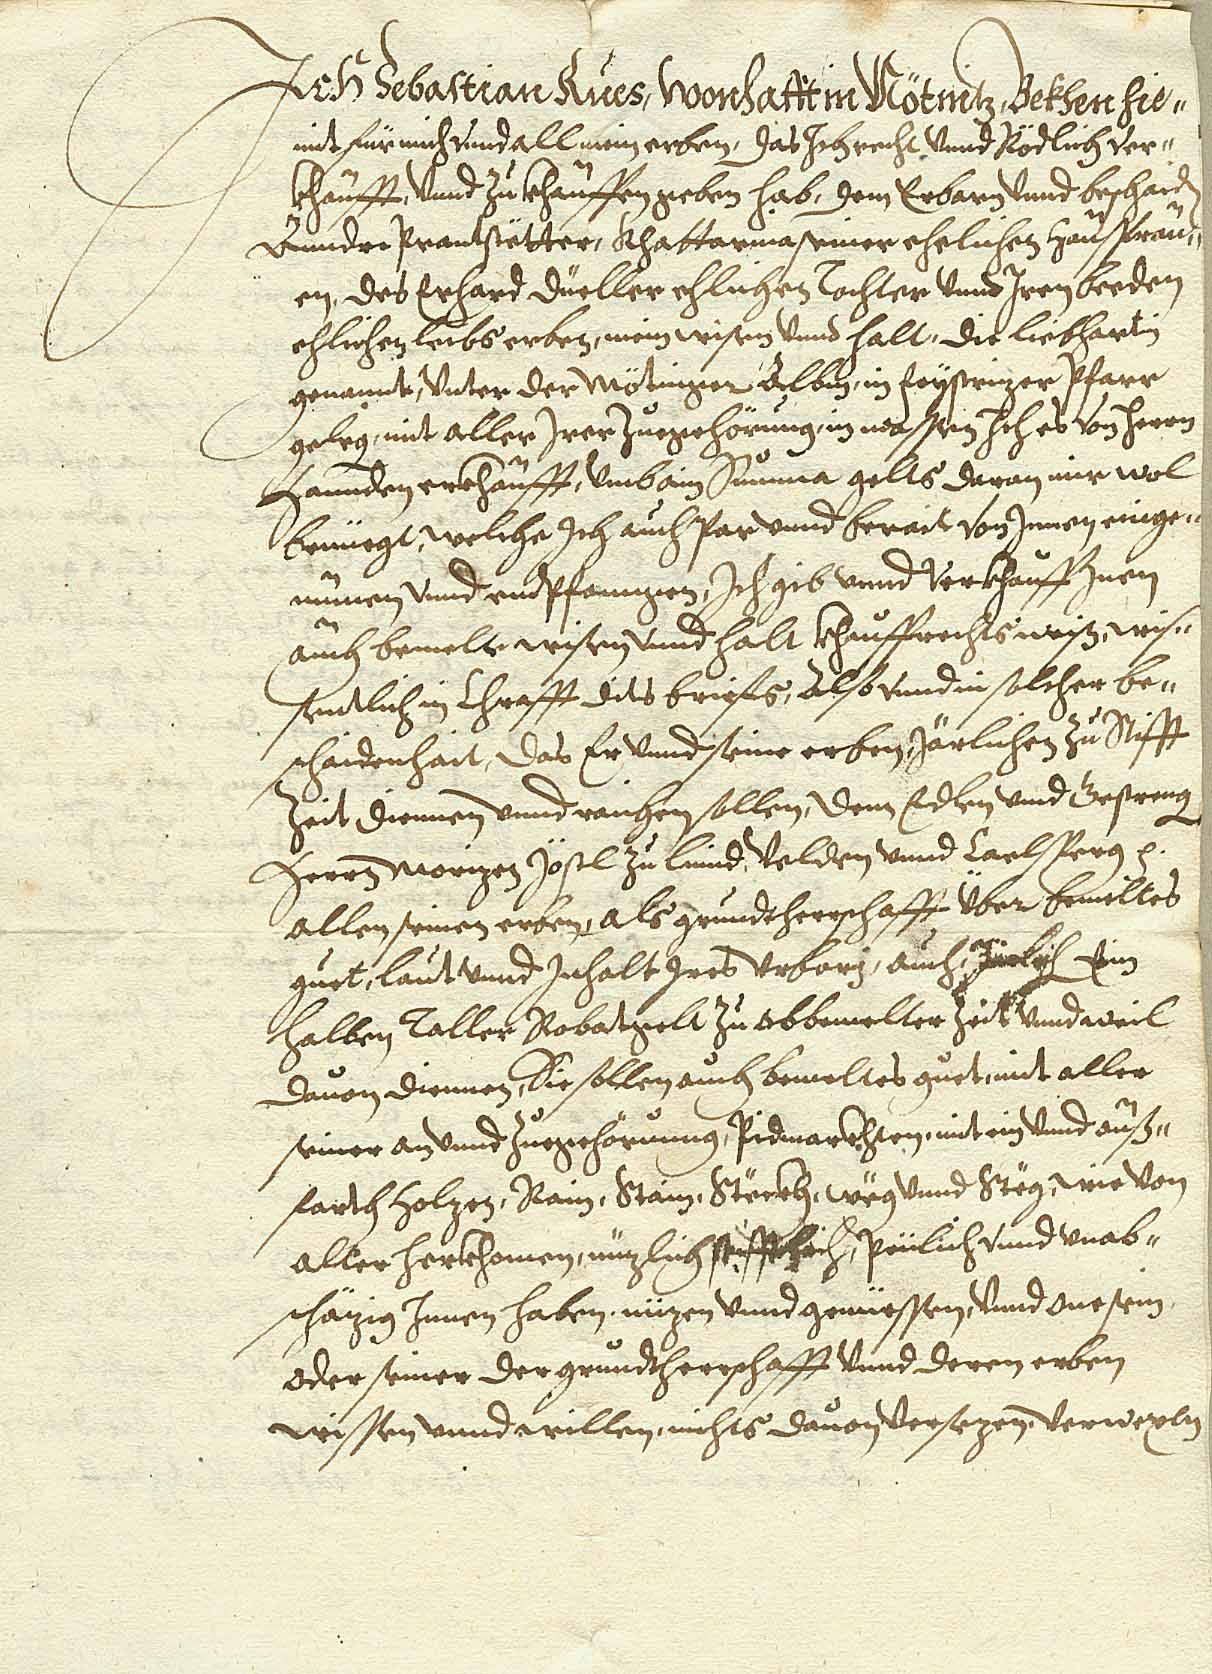 Ich Sebastian Kues, wonhafft in Nötnitz, Bekhen hie„
mit für mich vnnd all mein erben, das Ich recht vnnd Rödlich ver„
khaufft, vnnd zu khauffen geben hab, dem Erbarn vnnd beschaid
Anndre Prantstetter, Khattarina seiner ehelichen Haußfrau„
en, des Erhard Düeller ehlichen Tochter vnnd Iren beeden
ehlichen leibs erben, mein wisen vnnd halt, die liebhartin
genannt, vnter der Mötinger Albm, in Feystrizer Pfarr
geleg, mit aller Irer Zuegehörung, in massen Ich es von Herrn
erkhaufft, vmb ain Summa gelts daran mir wol
benüegt, welche Ich auch Par vnnd berait von Innen einge„
numen vnnd endtpfanngen, Ich gib vnnd verkhauff Inen
auch bemelte wisen vnnd halt khauffrechts weiß, wis„
sentlich in Chrafft dits briefs, Also vnnd in solcher be„
schaidenhait, das Er vnnd seine erben, Järlichen zu Stifft
Zeit diennen vnnd raichen sollen, dem Edlen vnnd Gestreng
Herrn Morizen Jöstl zu Lind, Velden vnnd
allen seinen erben, als grundtherrschafft über bemeltes
guet, laut vnnd Inhalt Ires vrbars, auch Järlich Ein
halben Taller Robatgelt zu obbemelter Zeit vnnd weil
dauon diennen, Sie sollen auch bemeltes guet, mit aller
seiner an vnnd Zuegehörunng, Pidmarchten, mit ein vnnd auß„
farth Holzen, Rain, Stain, Steckh, weg vnnd Steg, wie von
alter herkhomen, nuzlich stifftlich, Peulich vnnd vnab„
schäzig Innen haben, nüzen vnnd geniessen, vnnd one sein,
oder seiner der grundtherrschafft vnnd deren erben
wissen vnnd willen, nichts dauon versezen, verwexln